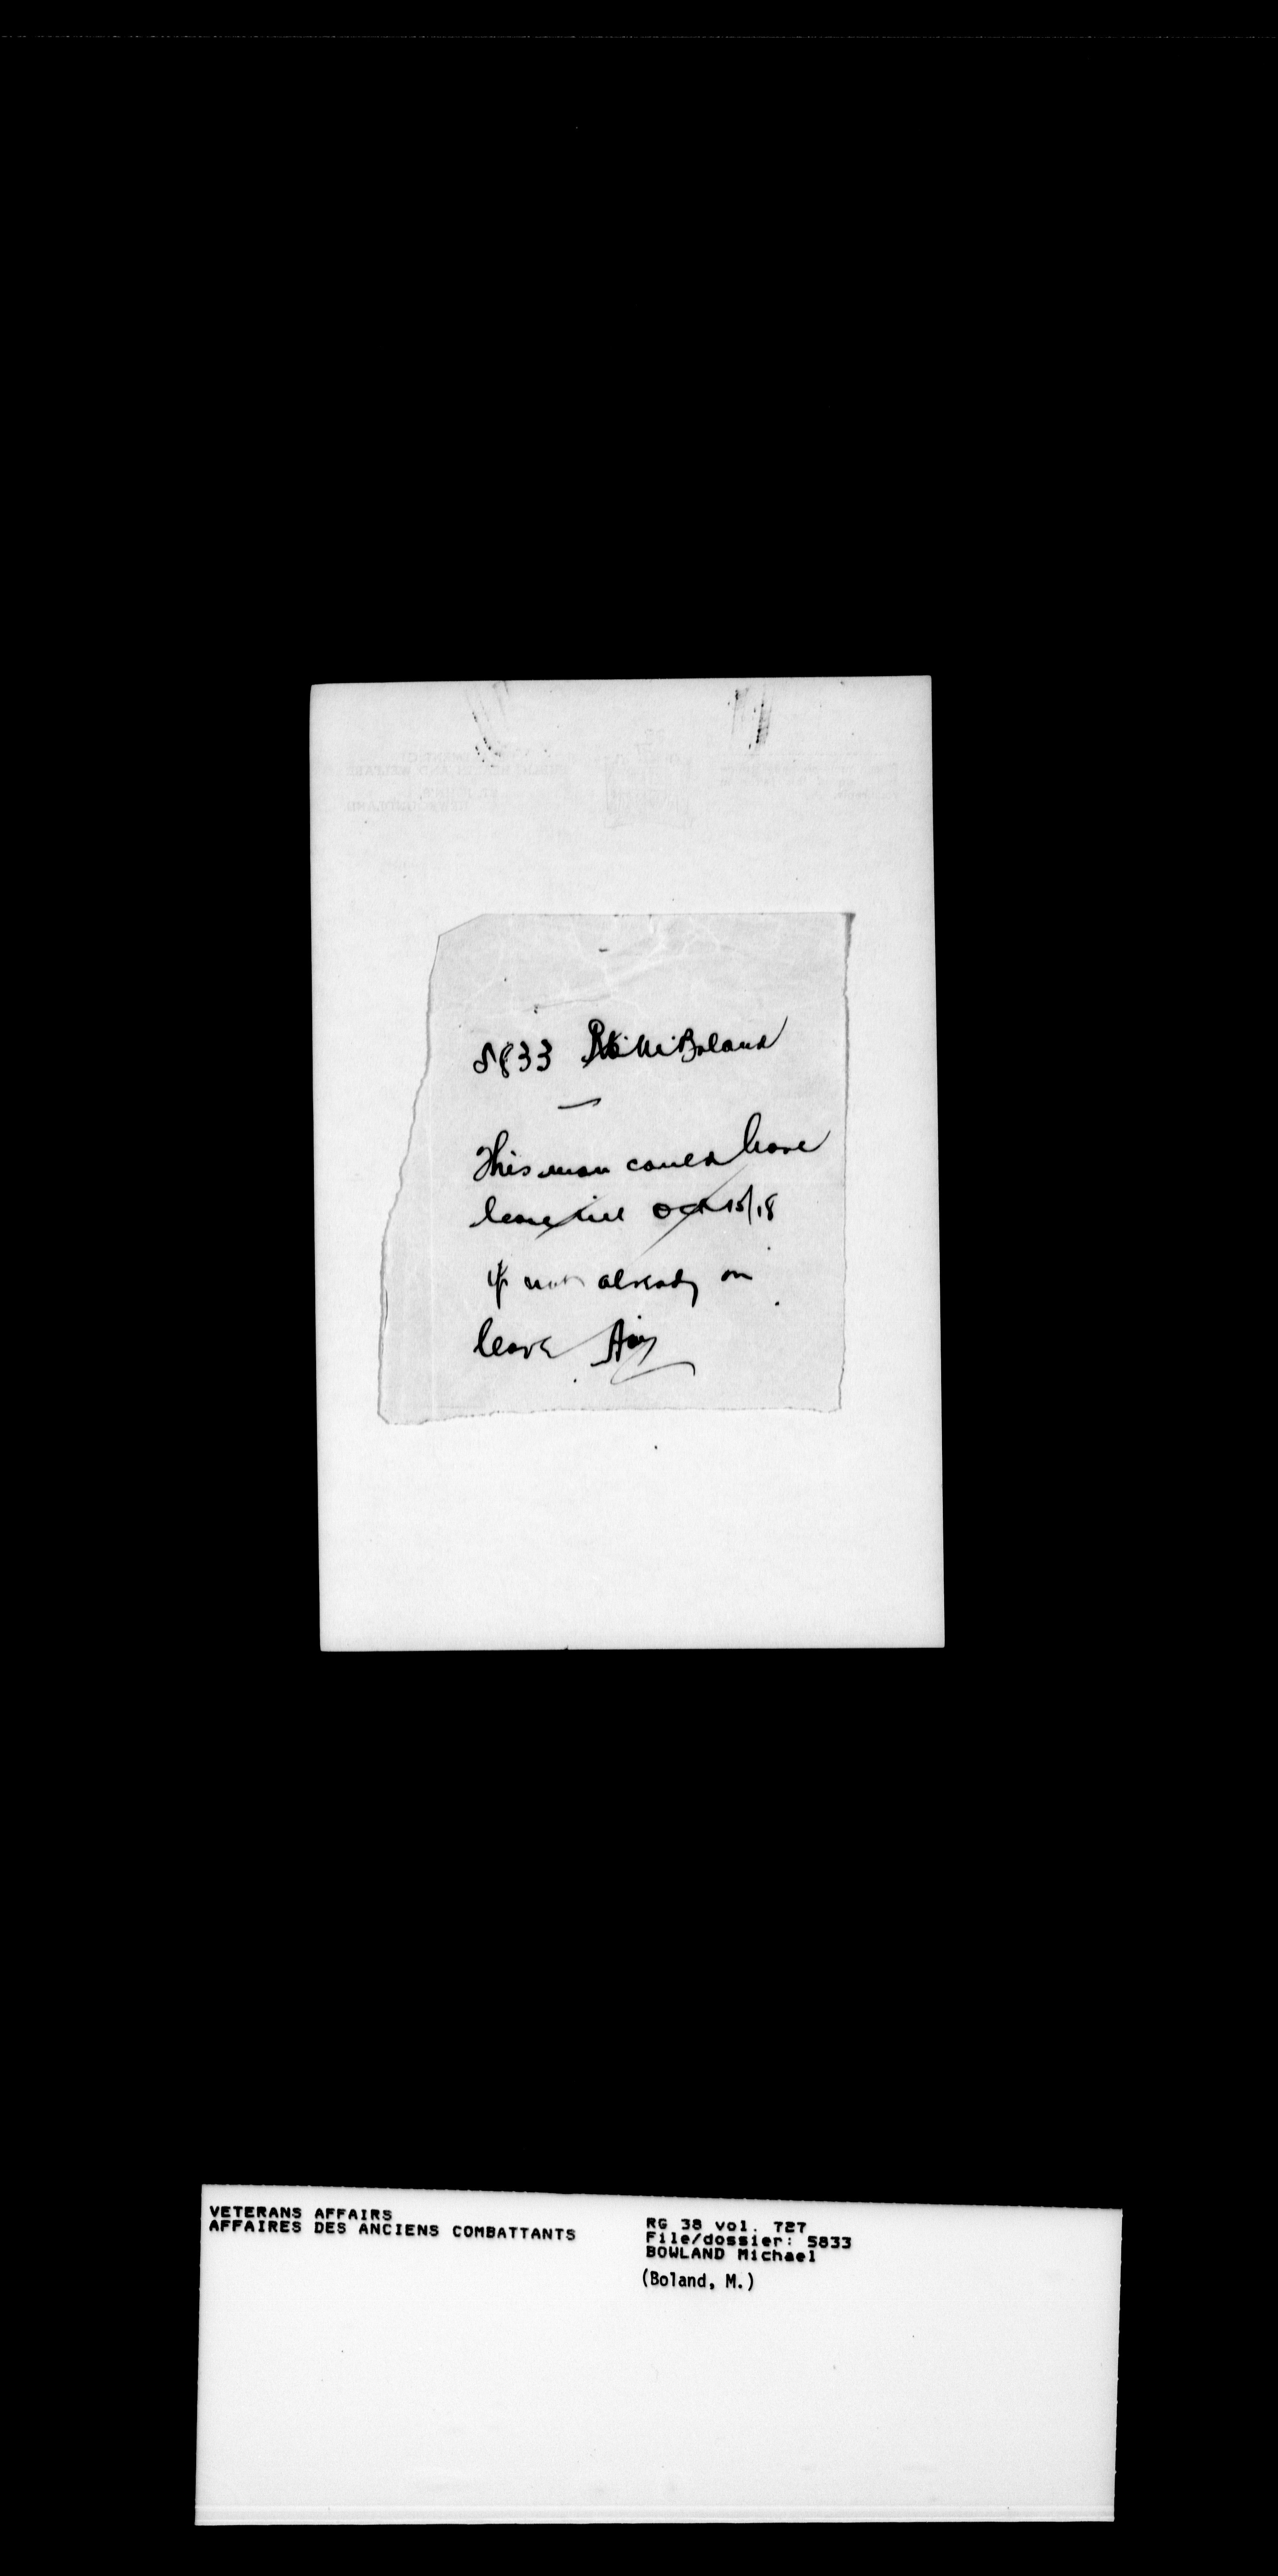 5833 Pte. M. Boland
This man could have
leave till Oct 15/18
if not already on
leave
VETERANS AFFAIRS
AFFAIRES DES ANCIENS COMBATTANTS
RG 38 vol. 727
File/dossier: 5833
BOWLAND Michael
(Boland, M.)